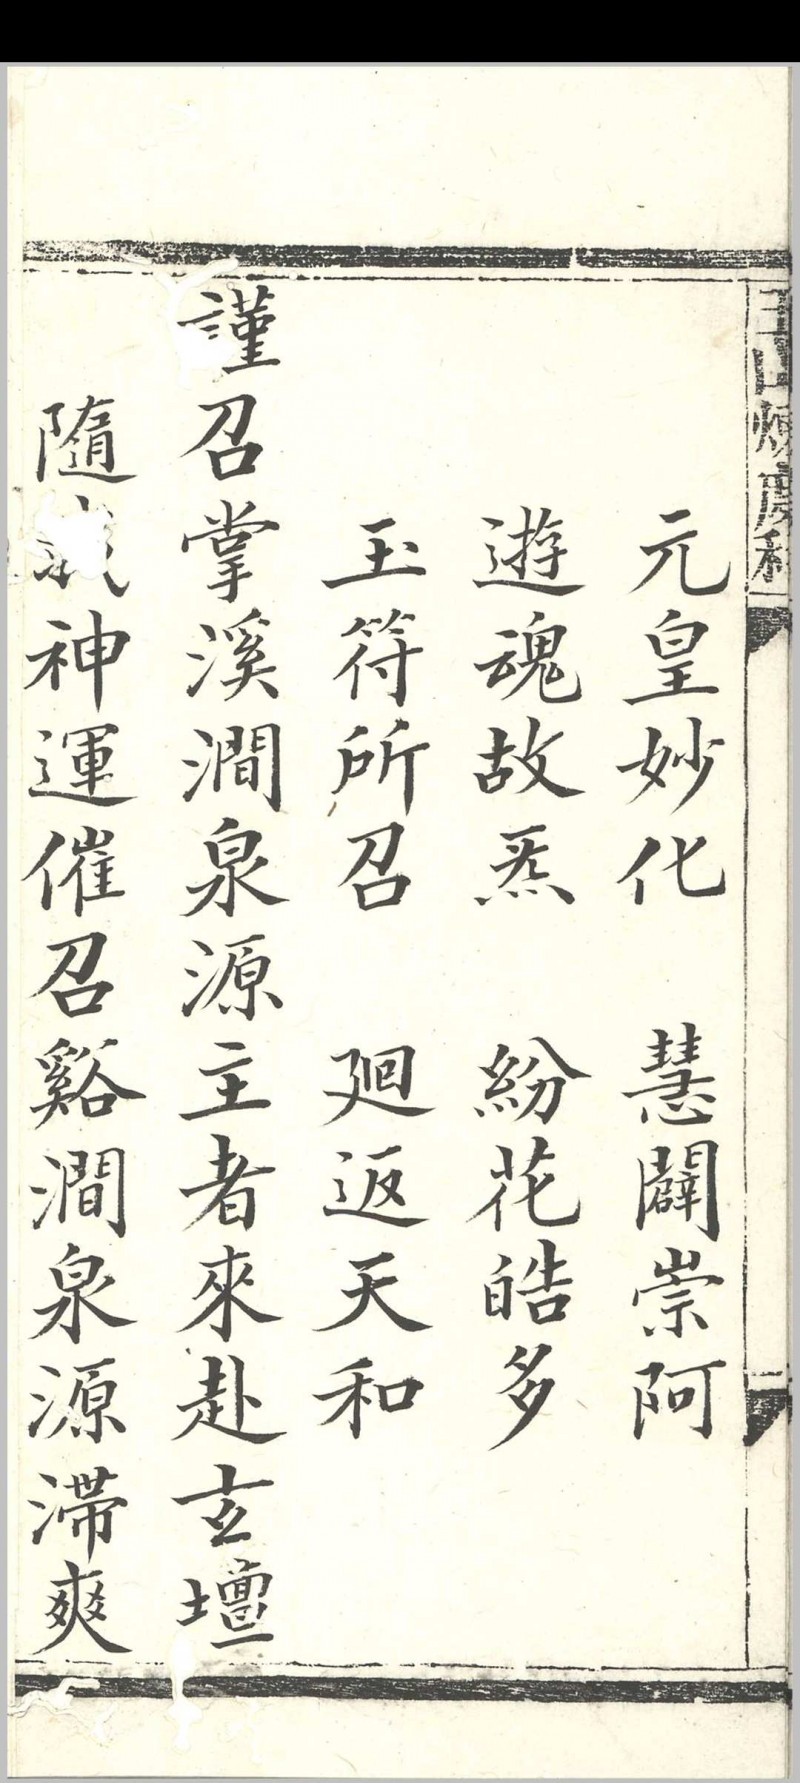 玉山煉度科
元皇妙化　慧闢崇阿
遊魂故炁　紛花皓多
玉符所召　廻返天和
謹召掌溪澗泉源主者來赴玄壇
隨我神運催召谿澗泉源滯爽